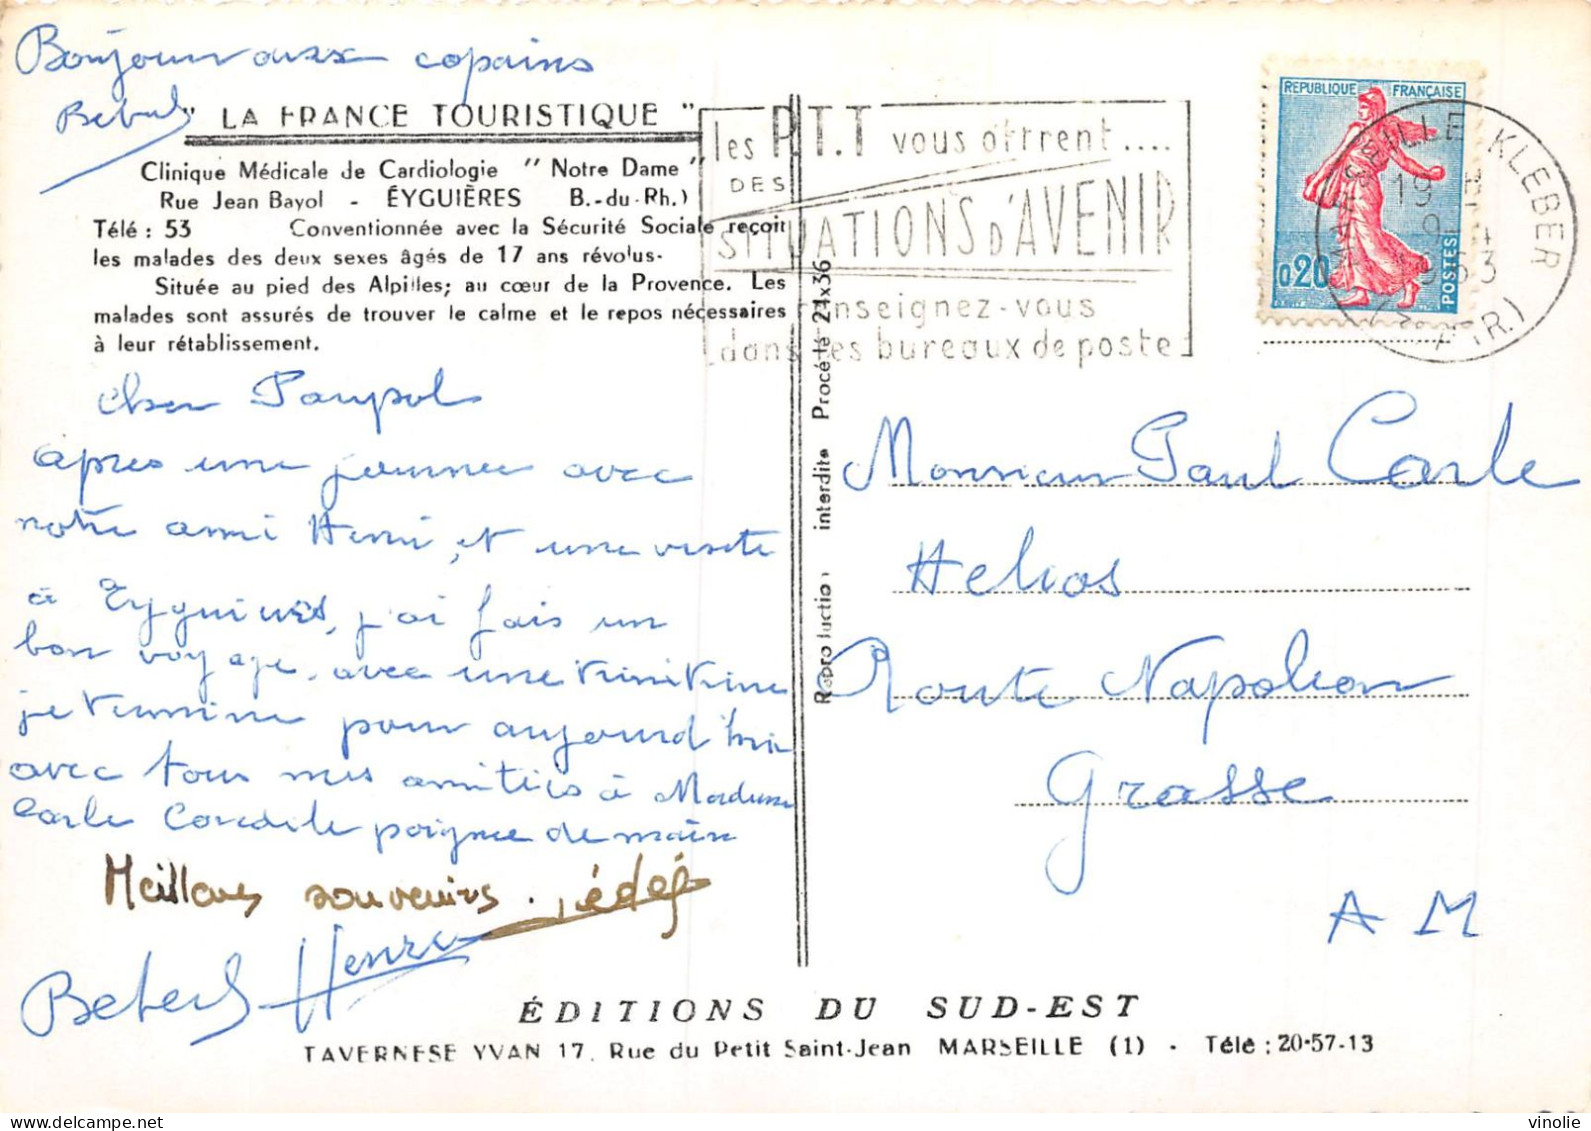 Bonjour aux copains
" LA FRANCE TOURISTIQUE "
Clinique Médicale de Cardiologie " Notre Dame "
Rue Jean Bayol - ÉYGUIÈRES B.-du-Rh.)
Télé : 53 Conventionnée avec la Sécurité Sociale reçoit
les malades des deux sexes âgés de 17 ans révolus.
Située au pied des Alpilles; au cœur de la Provence. Les
malades sont assurés de trouver le calme et le repos nécessaires
à leur rétablissement.
les P.T.T vous offrent ....
DES
SITUATIONS D'AVENIR
renseignez-vous
dans les bureaux de poste
REPUBLIQUE FRANÇAISE
0,20
POSTES
MARSEILLE KLEBER
19 H
9-4
1963
Cher Paupol
après une journée avec
notre ami Henri, et une visite
à Eyguières, j'ai fais un
bon voyage. avec une
je termine pour aujourd'hui
avec tous mes amitiés à Madame
Carle poignée de main
Meilleurs souvenirs. Dédé
Bebert Henri
Reproduction interdite Procédé 24x36
Monsieur Paul Carle
Helios
Route Napoléon
Grasse
A M
ÉDITIONS DU SUD-EST
TAVERNESE YVAN 17, Rue du Petit Saint-Jean MARSEILLE (1) - Télé : 20-57-13
vinolie